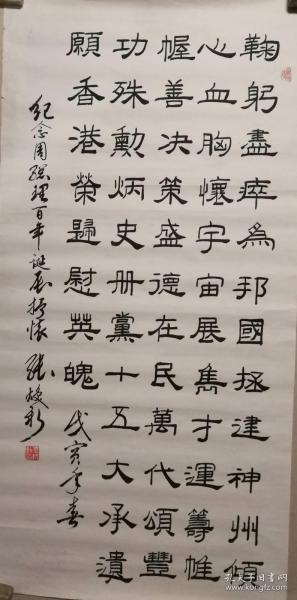 鞠躬盡瘁為邦國拯建神州傾
心血胸懷宇宙展雋才運籌帷
幄善决策盛德在民萬代頌豐
功殊勳炳史冊黨十五大承遺
願香港榮歸慰英魄 戊寅年春
紀念周總理百年誕辰抒懷 張